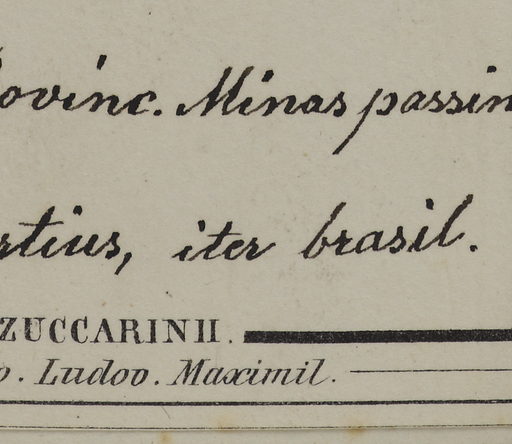 ovinc. Minas passim
rtius, iter brasil.
ZUCCARINII.
o. Ludov. Maximil.